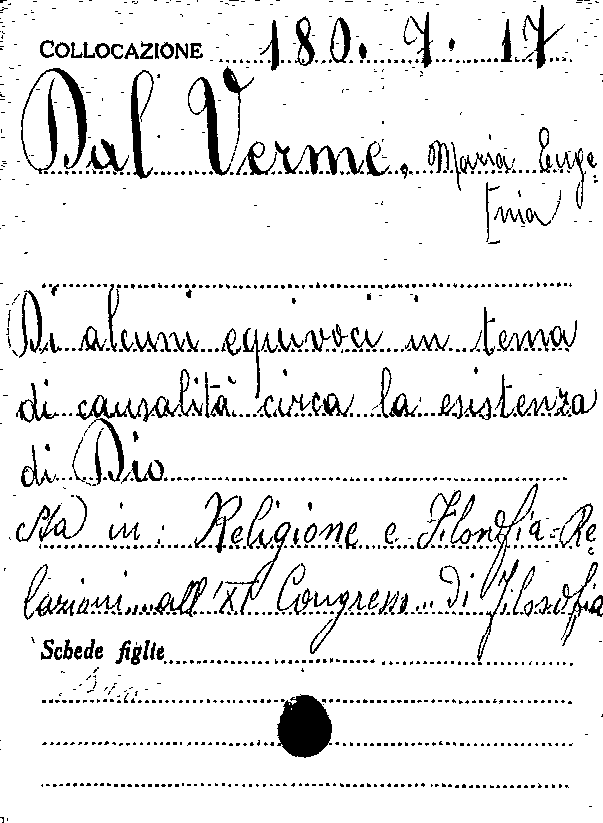 COLLOCAZIONE 180. 7. 17
Dal Verme, Maria Euge-
[nia
Di alcuni equivoci in tema
di causalità circa la esistenza
di Dio
Sta in: Religione e Filosofia-Re-
lazioni...all'XI Congresso..di Filosofia
Schede figlie